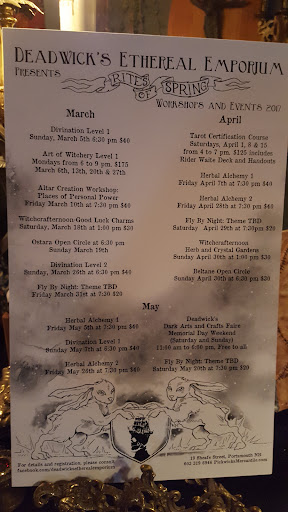 Deadwick's Ethereal Emporium
Presents
Rites of Spring
Workshops and Events 2017
March
Divination Level 1
Sunday, March 5th 6:30 pm $40
Art of Witchery Level 1
Mondays from 6 to 9 pm. $175
March 6th, 13th, 20th & 27th
Altar Creation Workshop:
Places of Personal Power
Friday March 10th at 7:30 pm $40
Witchcrafternoon-Good Luck Charms
Saturday, March 18th at 1:00 pm $30
Ostara Open Circle at 6:30 pm
Sunday March 19th
Divination Level 2
Sunday, March 26th at 6:30 pm $40
Fly By Night: Theme TBD
Friday March 31st at 7:30 $20
April
Tarot Certification Course
Saturdays, April 1, 8 & 15
from 4 to 7 pm. $125 includes
Rider Waite Deck and Handouts
Herbal Alchemy 1
Friday April 7th at 7:30 pm $40
Herbal Alchemy 2
Friday April 28th at 7:30 pm $40
Fly By Night: Theme TBD
Saturday April 29th at 7:30pm $20
Witchcrafternoon
Herb and Crystal Gardens
Sunday April 30th at 1:00 pm $30
Beltane Open Circle
Sunday April 30th at 6:30 pm
May
Herbal Alchemy 1
Friday May 5th at 7:30 pm $40
Divination Level 1
Sunday May 7th at 6:30 pm $40
Herbal Alchemy 2
Friday May 26th at 7:30 pm $40
Deadwick's
Dark Arts and Crafts Faire
Memorial Day Weekend
(Saturday and Sunday)
11:00 am to 6:00 pm, Free to all
Fly By Night: Theme TBD
Saturday May 20th at 7:30 pm $20
For details and registration, please consult
facebook.com/deadwicksetherealemporium
19 Sheafe Street, Portsmouth NH
PickwicksMercantile.com